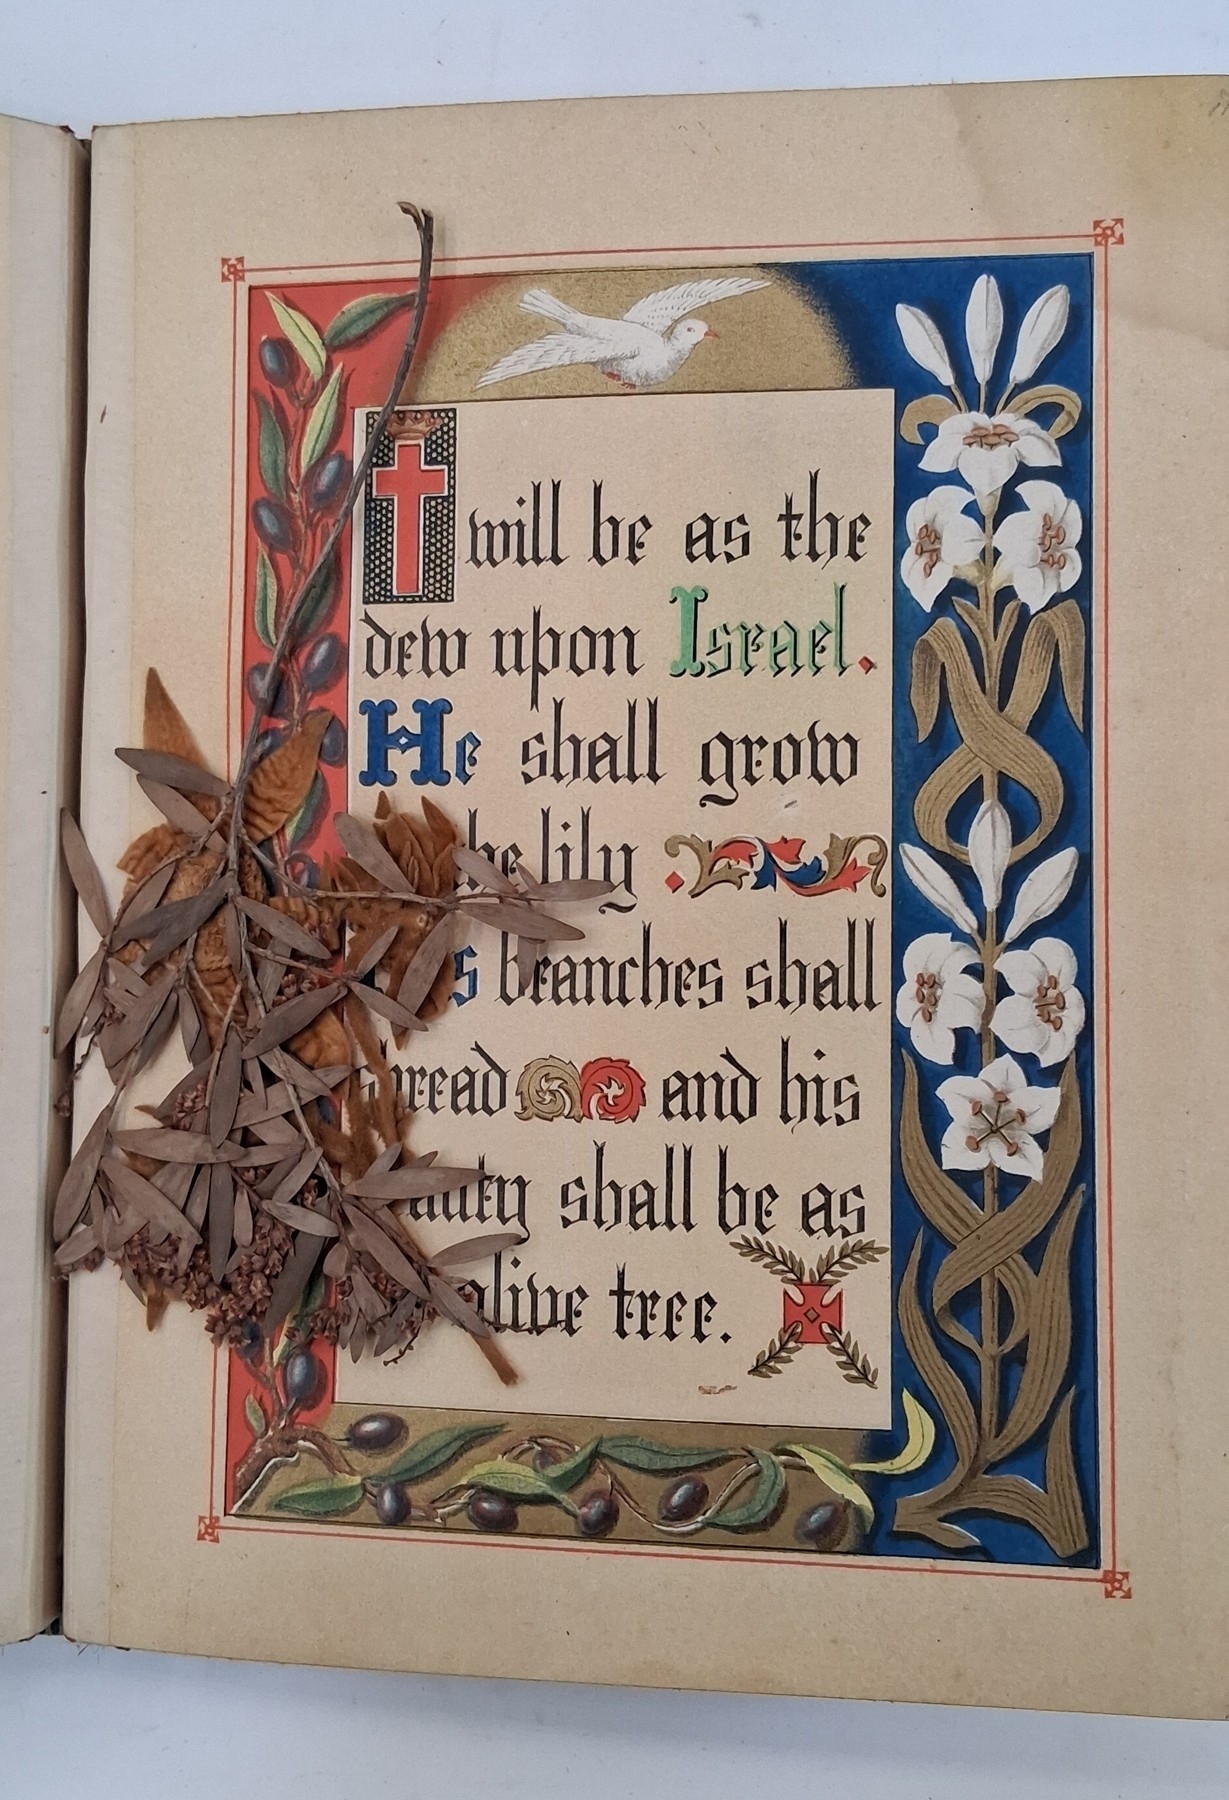 I will be as the
dew upon Israel.
He shall grow
the lily
His branches shall
spread and his
beauty shall be as
olive tree.